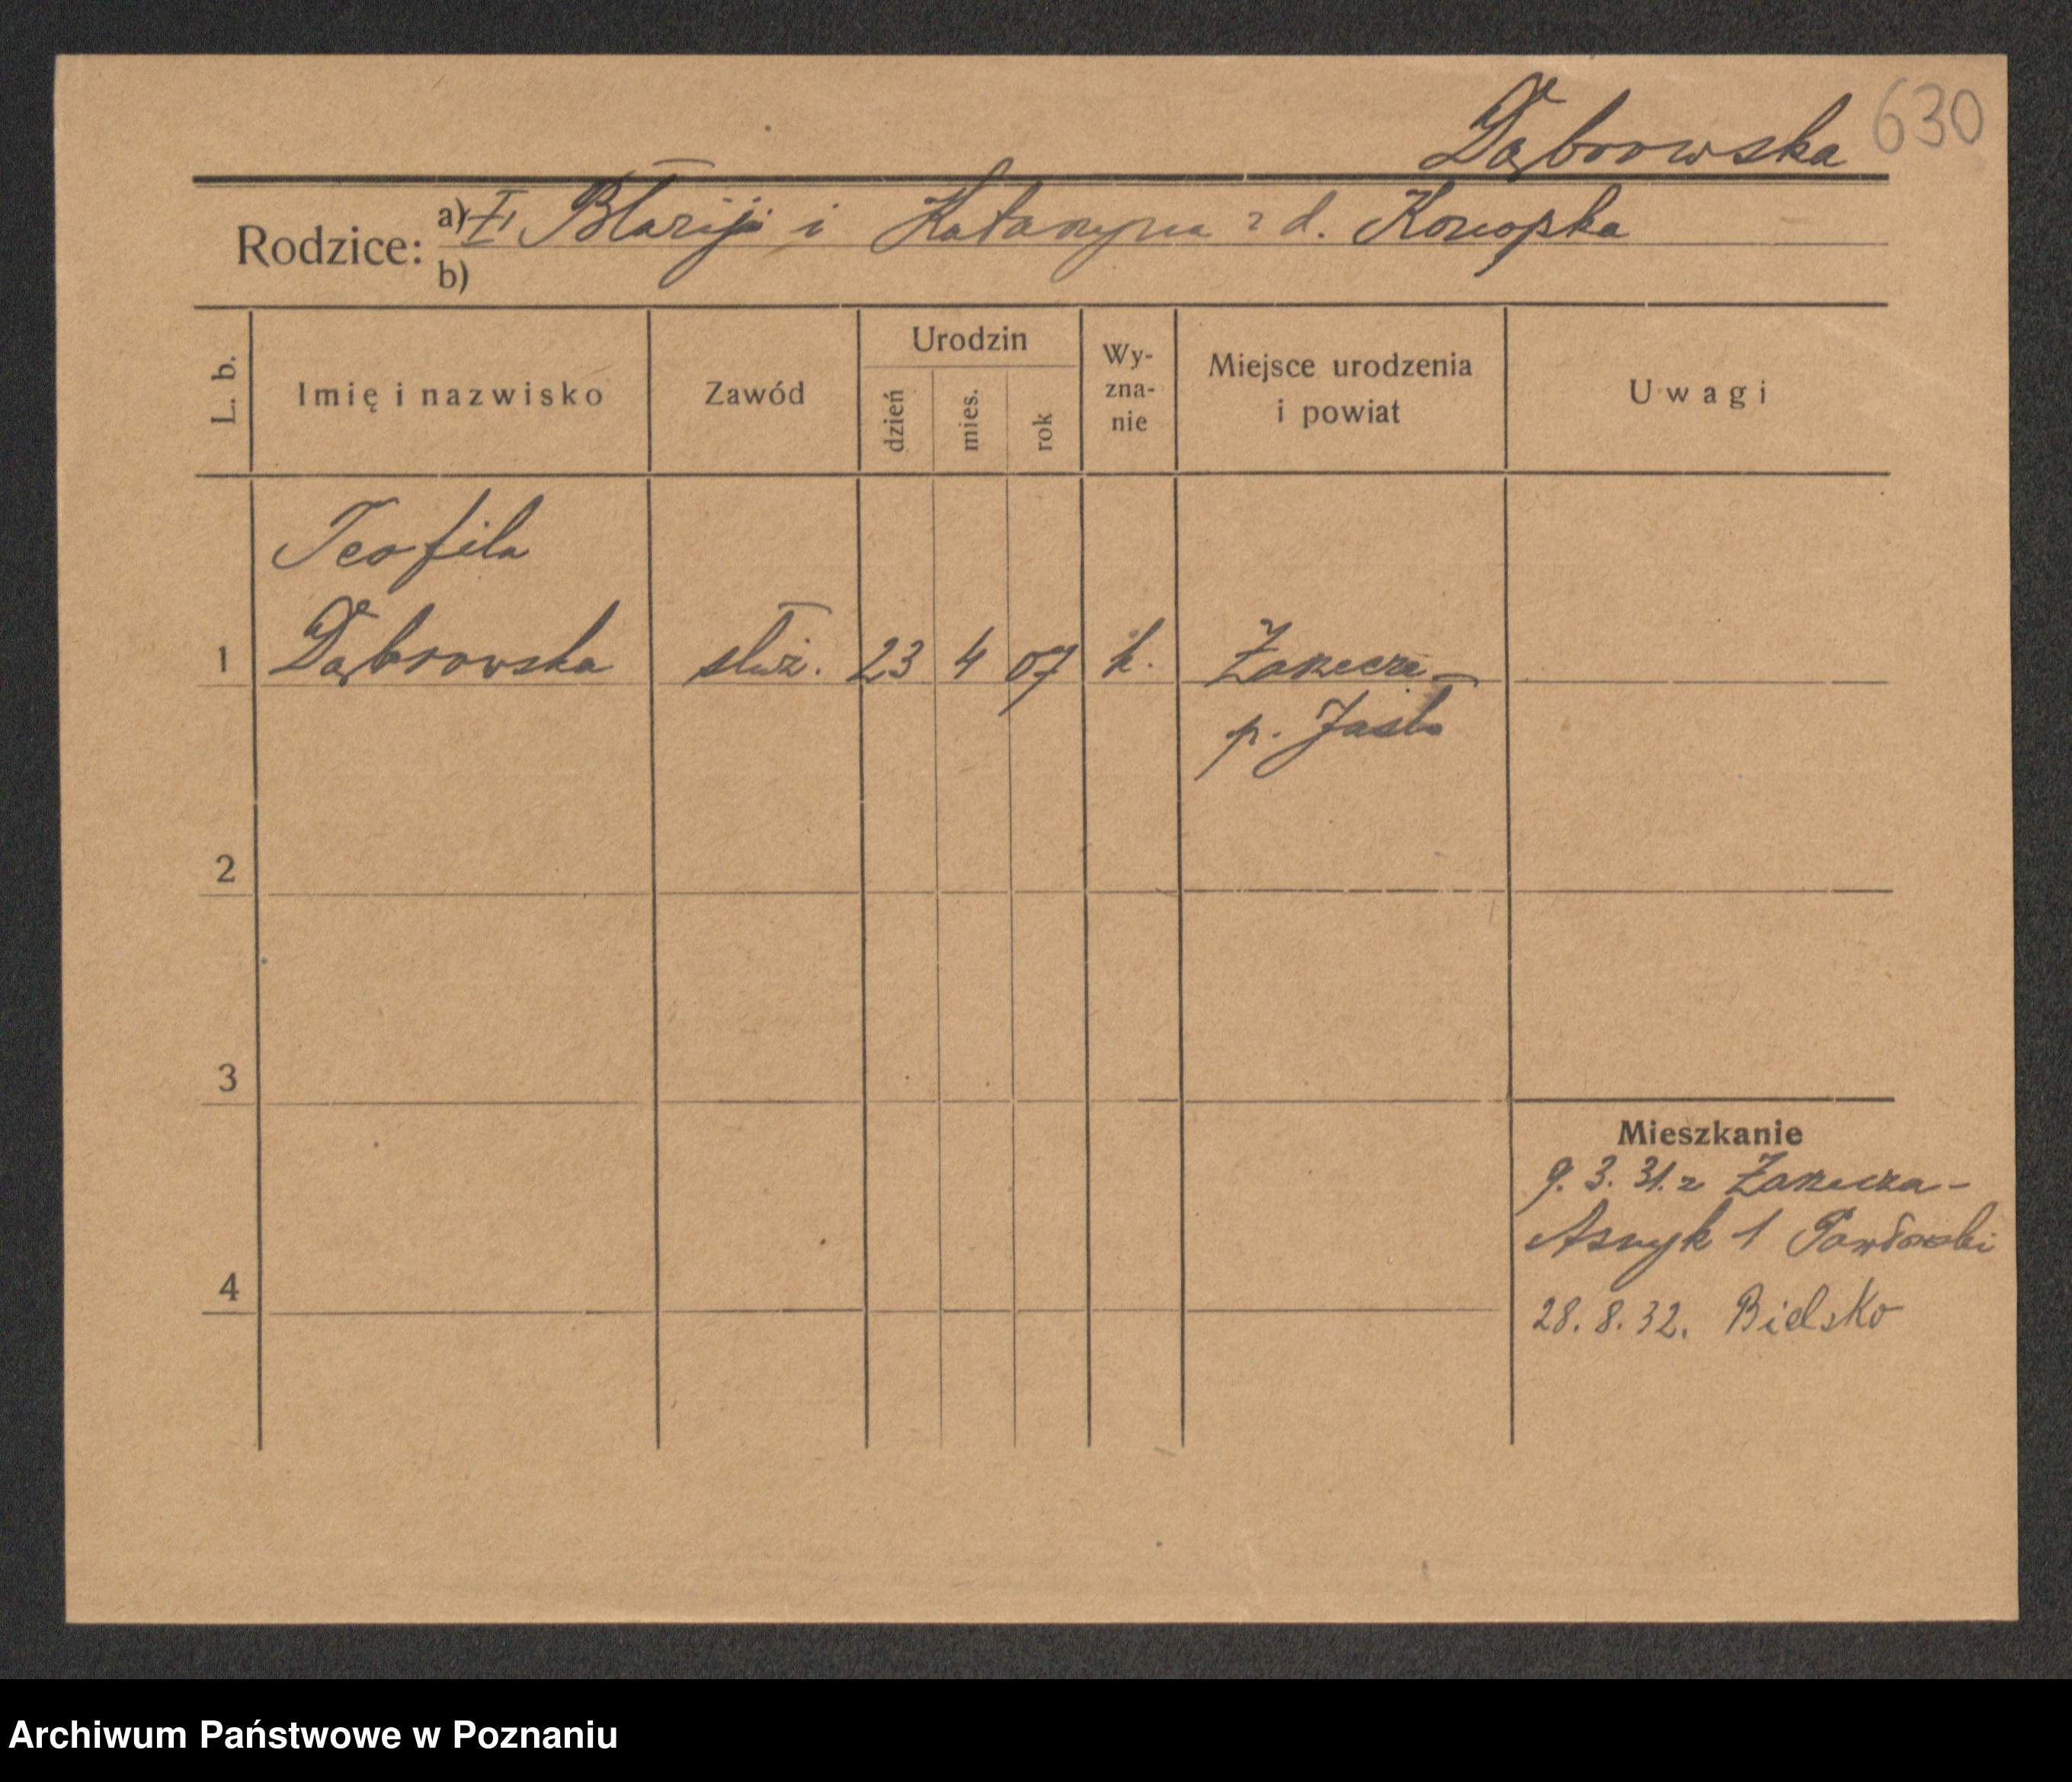 Dąbrowska 630
Rodzice: a) I, Błażej i Katarzyna z d. Konopka
b)
L. b. Imię i nazwisko Zawód Urodzin dzień mies. rok Wy-zna-nie Miejsce urodzenia i powiat Uwagi
Teofila
1 Dąbrowska służ. 23 4 07 k. Zarzecze
p. Jasło
2
3
Mieszkanie
9. 3. 31. z Zarzecza-
Asnyk 1 Pawłowski
4
28. 8. 32. Bielsko
Archiwum Państwowe w Poznaniu